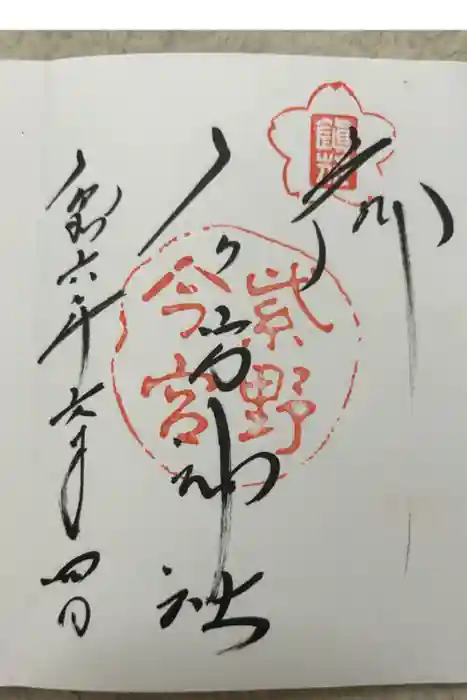 今宮神社
紫野
今宮
令和六年六月四日